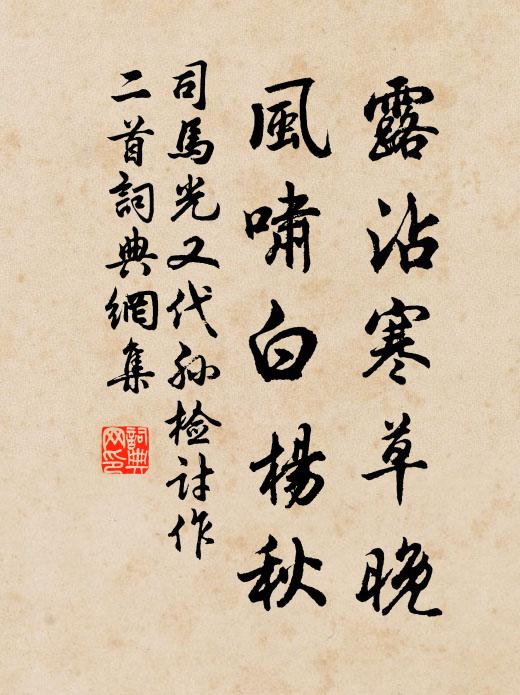 露沾寒草晚
風嘯白楊秋
司馬光又代孙檢討作
二首詞典網集
詞典
网印